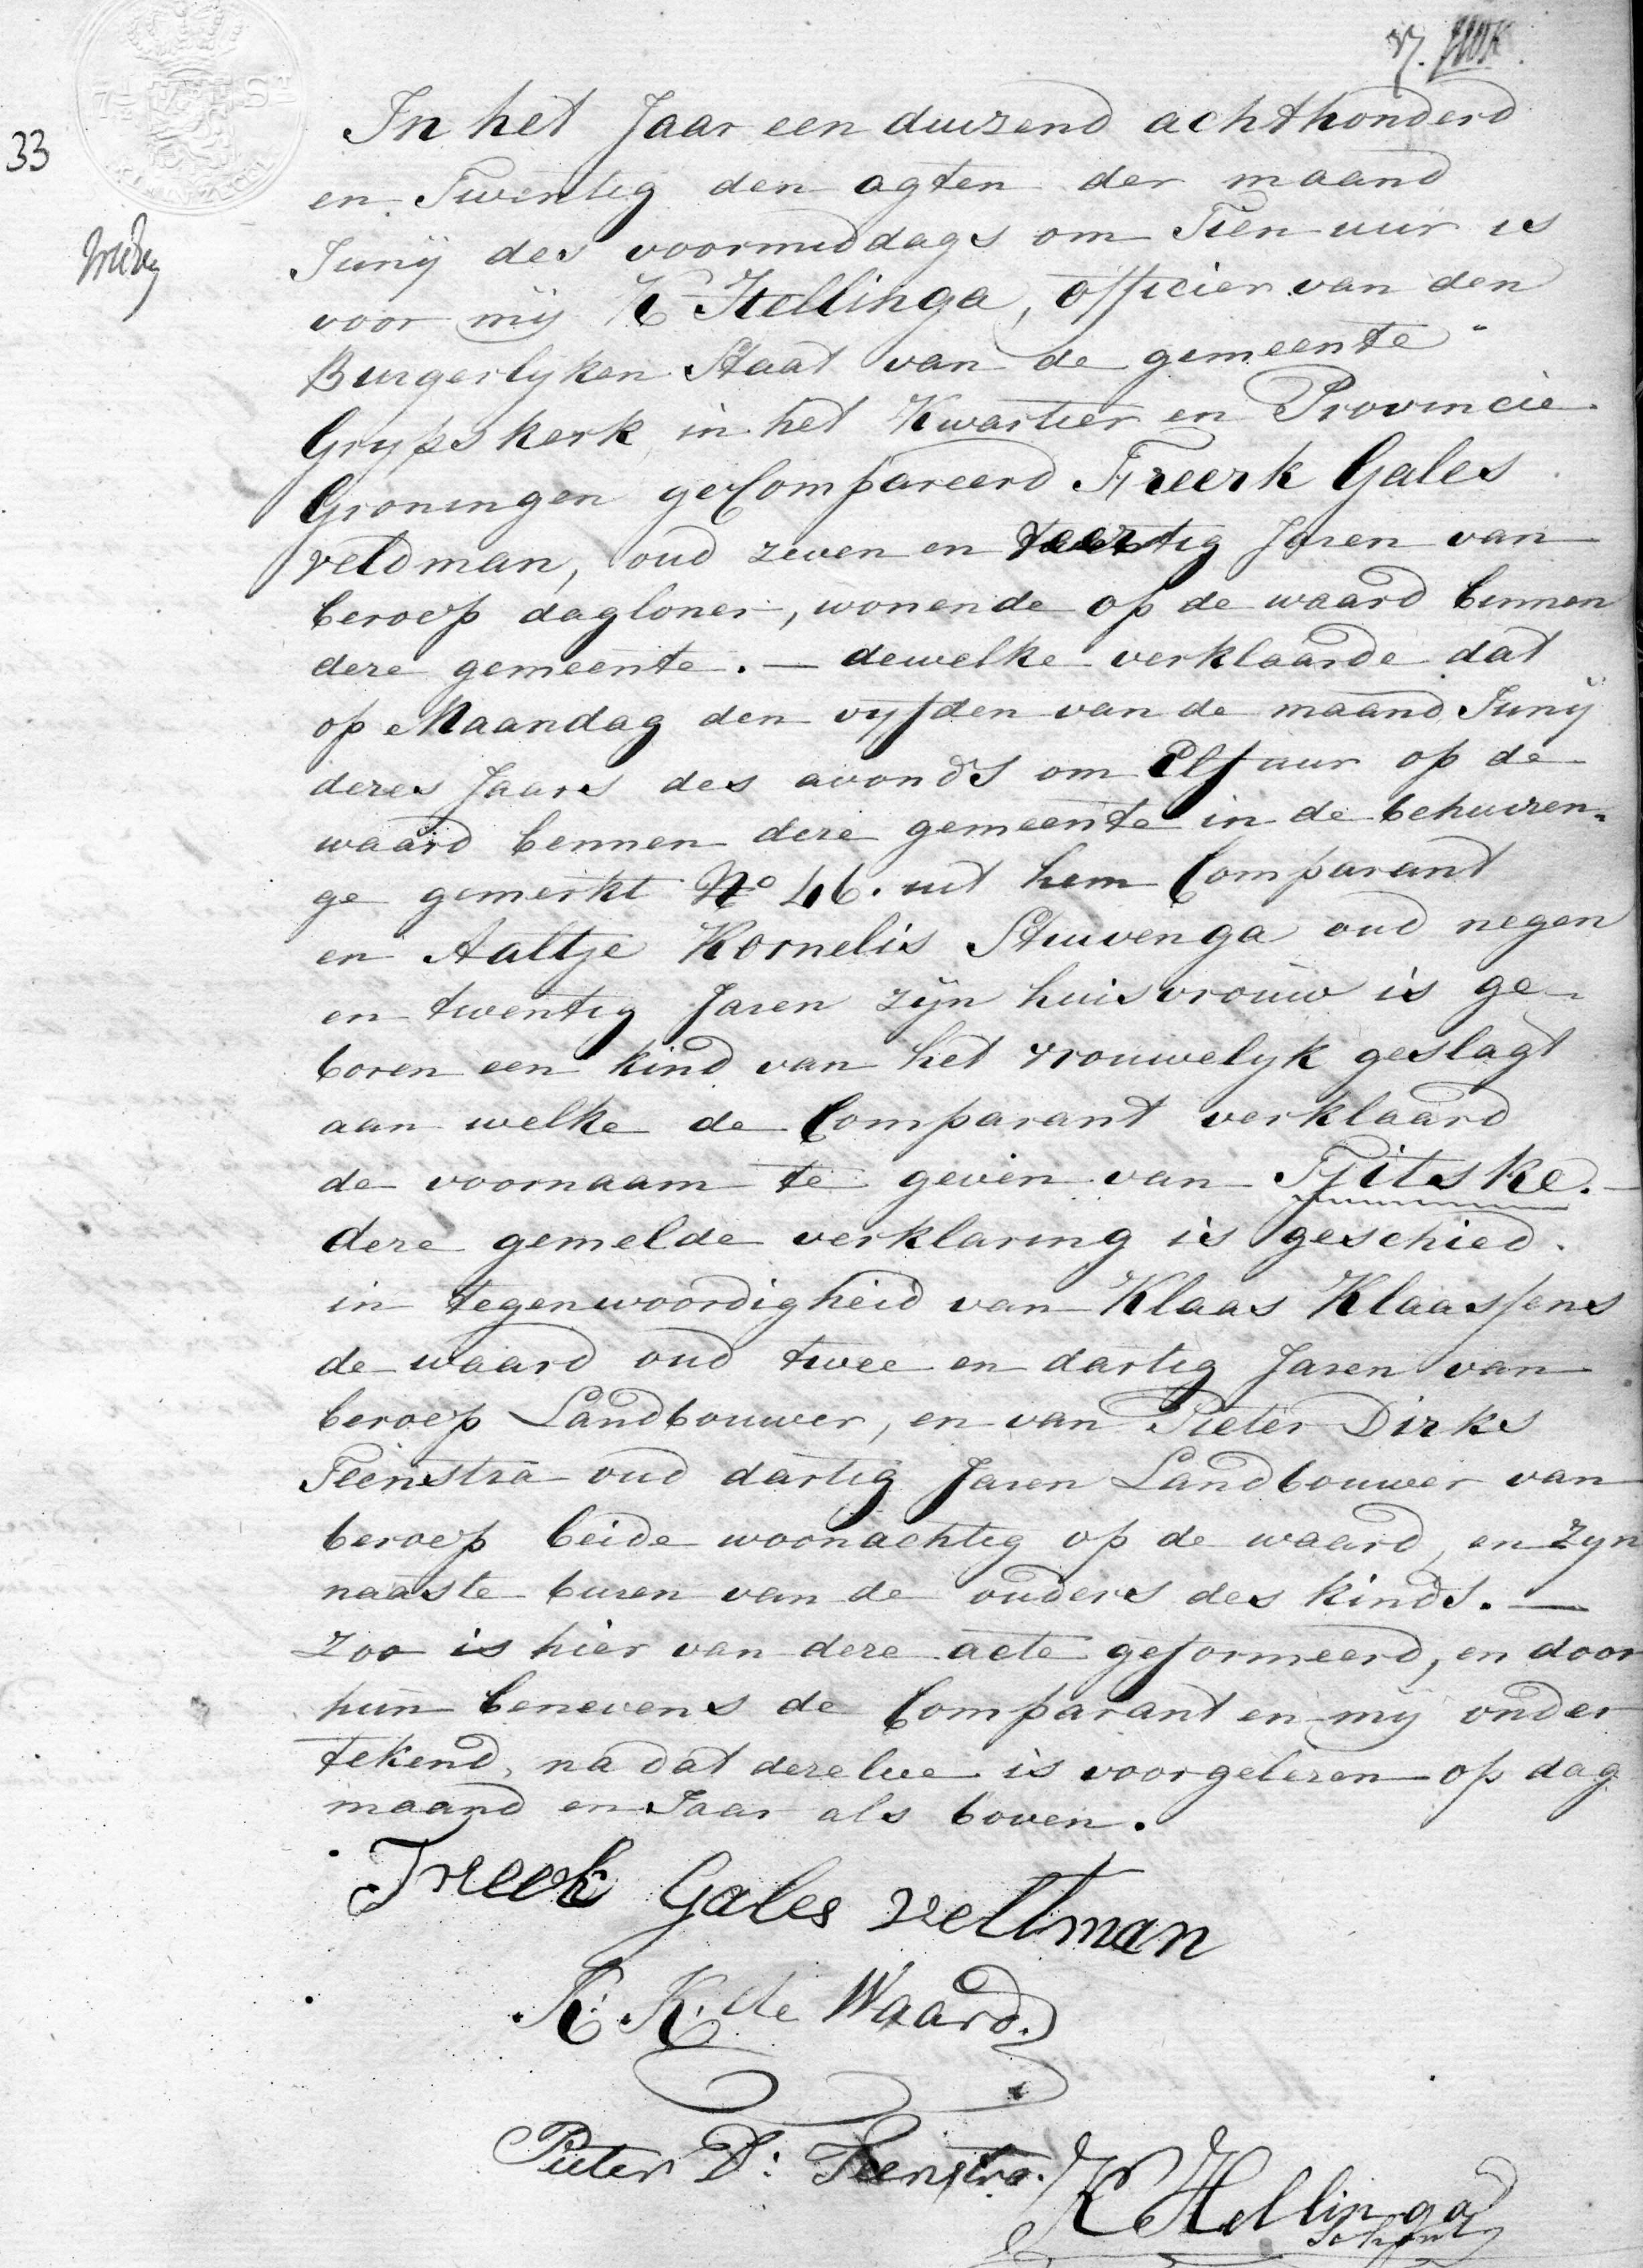 33
7½ St
KLEIN ZEGEL
In het Jaar een duizend achthonderd
en Twintig den agten der maand
Junij des voormiddags om Tien uur is
voor mij K Hellinga, officier van den
Burgerlyken Staat van de gemeente
Grypskerk, in het Kwartier en Provincie
Groningen geCompareerd Freerk Gales
veldman, oud zeven en tig Jaren van
beroep dagloner, wonende op de waard binnen
deze gemeente. — dewelke verklaarde dat
op Maandag den vyfden van de maand Junij
dezes Jaars des avonds om Elf uur op de
waard bennen deze gemeente in de behuizen-
ge gemerkt No 46. uit hem Comparant
en Aaltje Kornelis Stuivenga oud negen
en twentig Jaren zijn huisvrouw is ge-
boren een kind van het vrouwelyk geslagt
aan welke de Comparant verklaard
de voornaam te geven van Tjitske.
deze gemelde verklaring is geschied
in tegenwoordigheid van Klaas Klaassens
de waard oud twee en dartig Jaren van
beroep Landbouwer, en van Pieter Dirks
Teenstra oud dartig Jaren Landbouwer van
beroep beide woonachtig op de waard, en zyn
naaste buren van de ouders des kinds. —
Zoo is hier van deze acte geformeerd, en door
hun benevens de Comparant en mij onder
tekend, na dat dezelve is voorgelezen op dag
maand en Jaar als boven.
Freerk Gales veltman
K: K. de Waard.
Pieter D: Teenstra.
K Hellinga